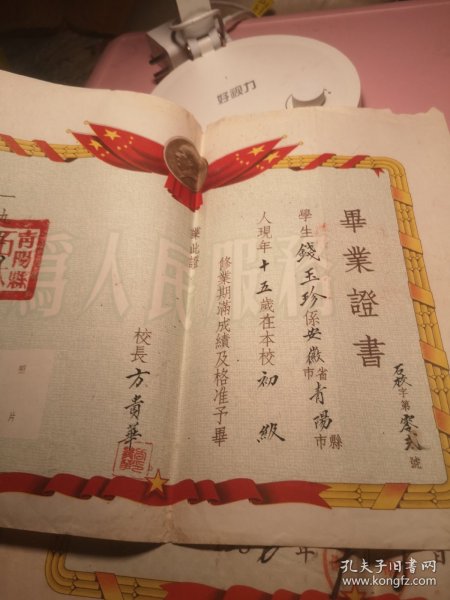 好视力
畢業證書
石秋字第零貳號
學生錢玉珍係安徽省市青陽縣市
人現年十五歲在本校初級
修業期滿成績及格准予畢
業此證
校長方貴華
為人民服務
青陽縣
照片
年
孔夫子旧书网
www.kongfz.com